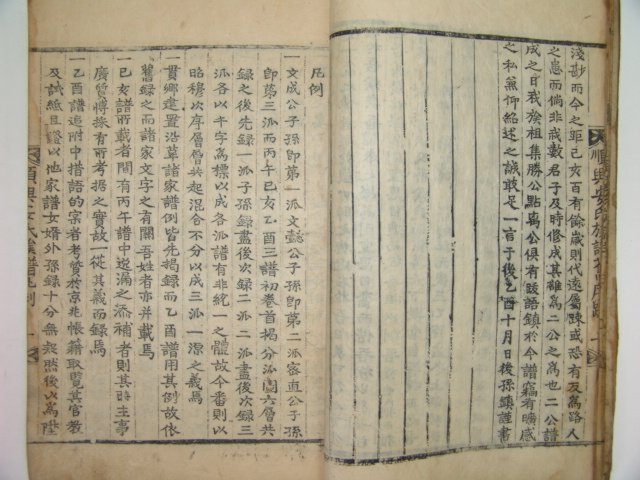 淺尠而今之距己亥百有餘歲則代遠屬踈或恐有及爲路人
之患而倘非我數君子及時修成其雖爲二公之爲也二公譜
成之日我族祖集勝公點嵩公俱有跋語鎭於今譜竊有曠感
之私兼仰紹述之誠敢足一言于後乙酉十月日後孫鎭謹書
凡例
一文成公子孫即第一派文懿公子孫即第二派密直公子孫
即第三派而丙午己亥乙酉三譜初卷首揭分派圖六層共
錄之後先錄一派子孫錄盡後次錄二派二派盡後次錄三
派各以千字爲標以成各派譜有非統一之體故今番則以
昭穆次序層層共起混合不分以成三派一源之義焉
一貫鄉建置沿革諸家譜例皆先揭錄而乙酉譜用其例故依
舊錄之而諸家文字之有關吾姓者亦并載焉
一己亥譜所載者間有丙午譜中遊漏之添補者則其時主事
廣質博採有所考据之實故一從其義而錄焉
一乙酉譜追附中措語的宗者考質於京兆帳籍取覽其官教
及試紙且證以他家譜女婿外孫錄十分無疑然後以爲陞